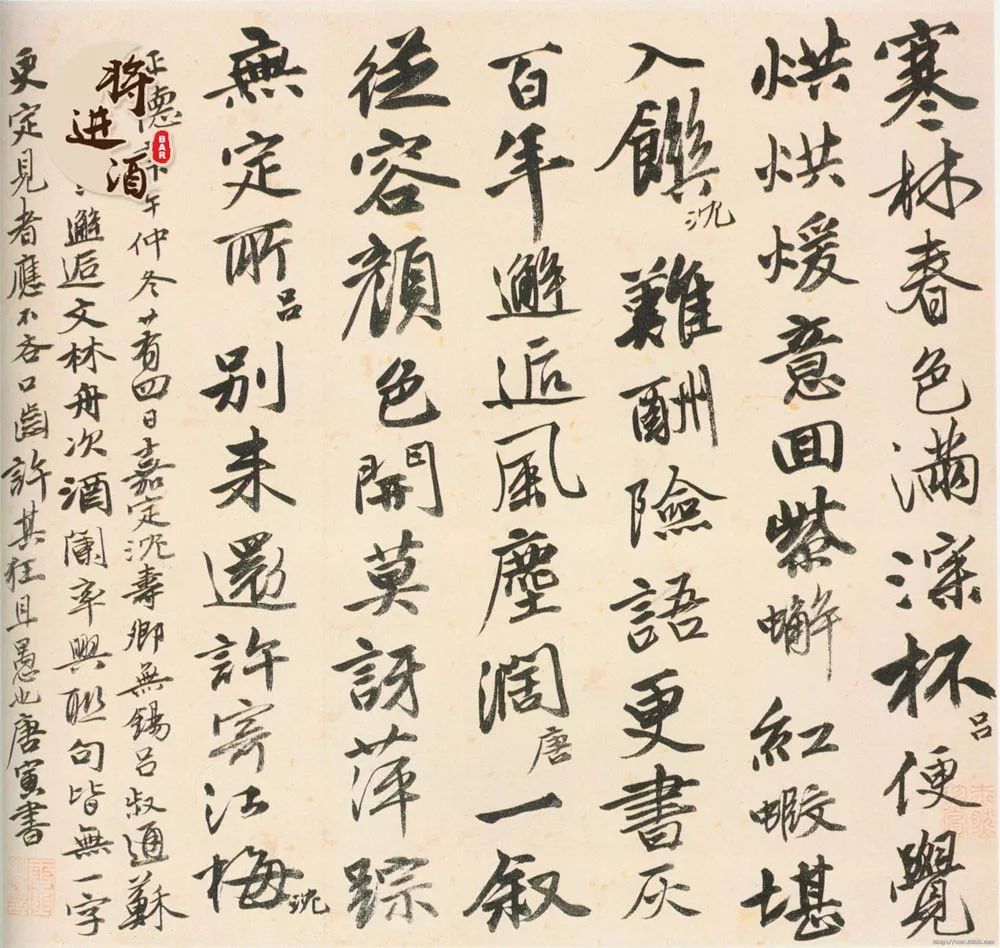 寒林春色滿深杯呂便覺
烘烘煖意囬紫蠏紅蝦堪
入饌沈難酬險語更書灰
百年邂逅風塵濶唐一叙
從容顏色開莫訝萍踪
無定所呂別來還許寄江梅沈
正德午仲冬廿有四日嘉定沈壽卿無錫呂叔通蘇
邂逅文林舟次酒闌率興聯句皆無一字
更定見者應不吝口齒許其狂且愚也唐寅書
将进酒
BAR